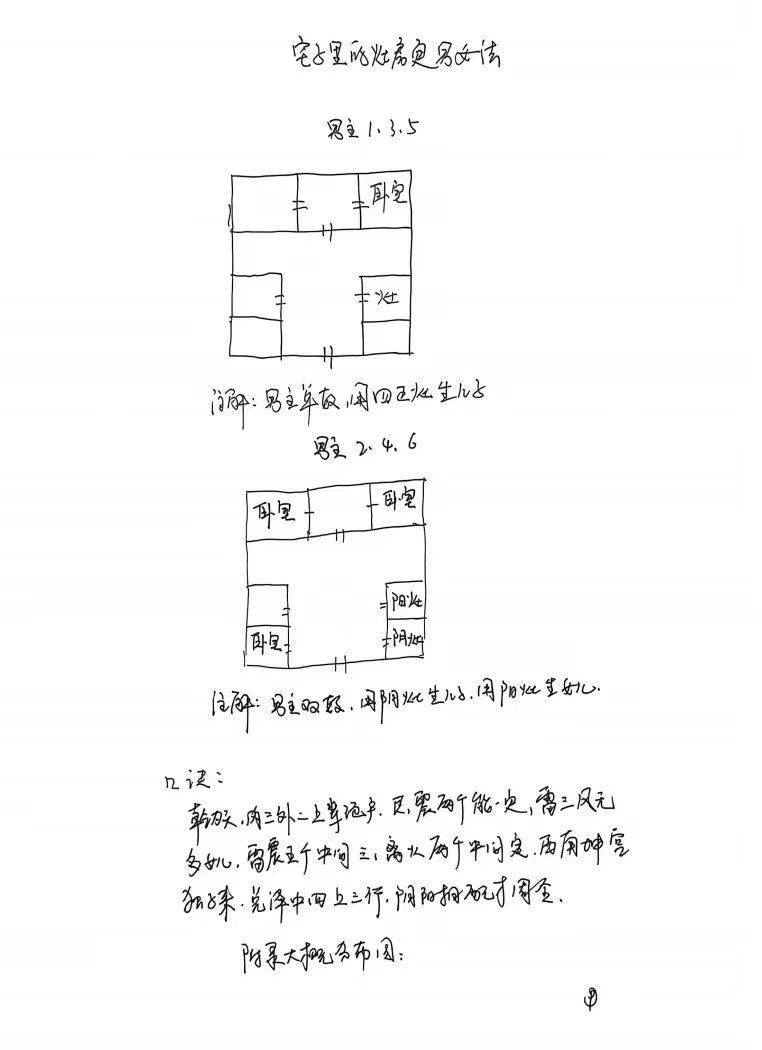 宅子里的灶房定男女法
男主1.3.5
卧室
灶
注解：男主单数，用四正灶生儿子
男主2.4.6
卧室 卧室
阳灶
卧室 阴灶
注解：男主双数，用阴灶生儿子，用阳灶生女儿.
口诀：
内三外二上单, 艮,震两个能一定,雷三风元
多女儿.雷震五个中间三,离火两个中间定.西南坤宫
独子来.兑泽中四上三行,阴阳相配才周全.
附录大概分布图：